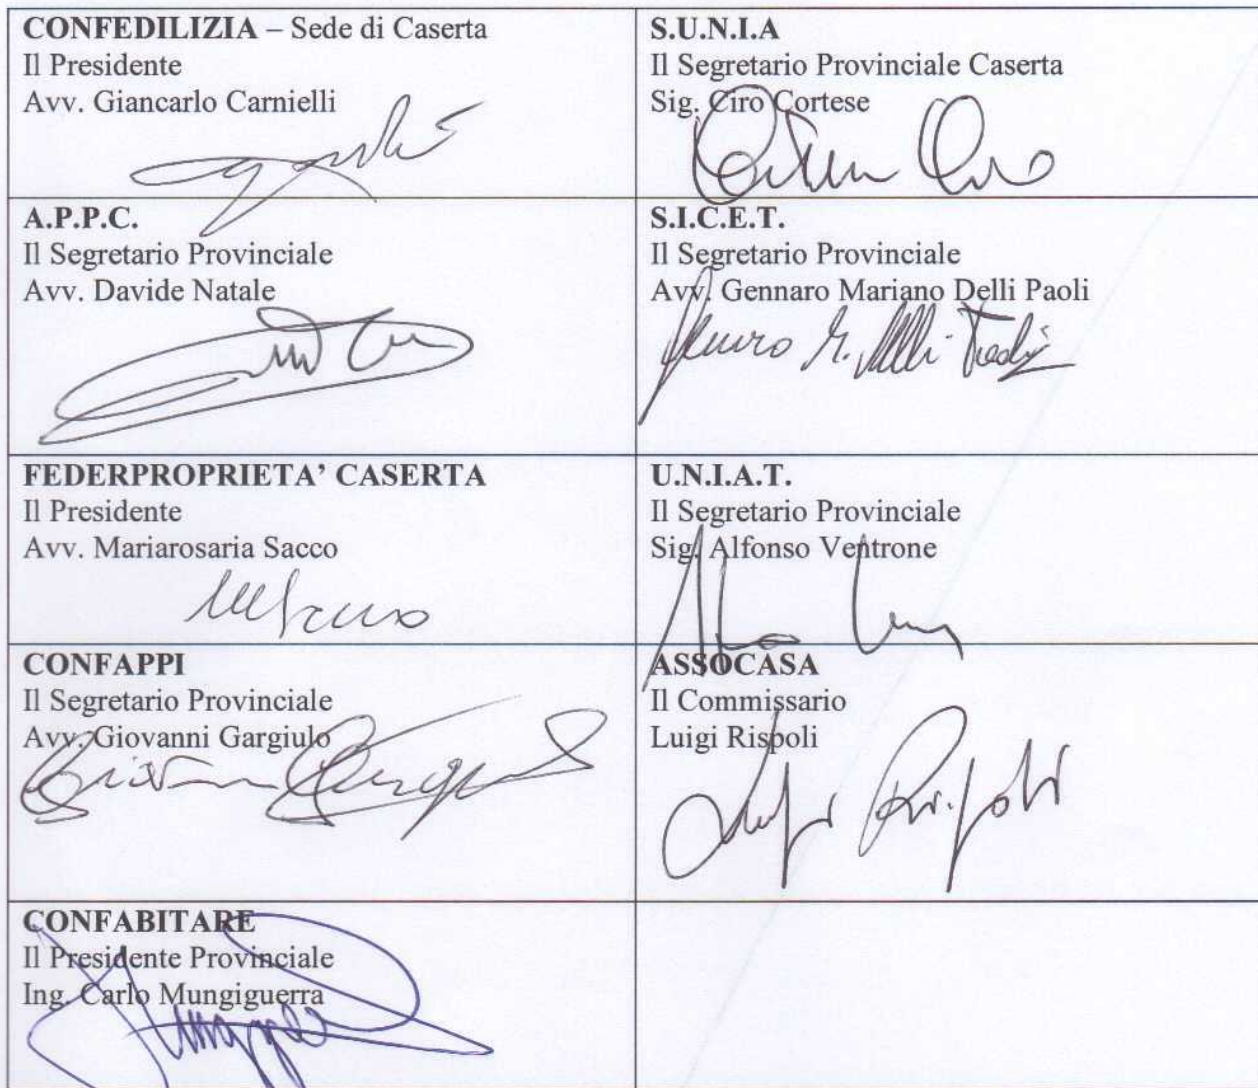 CONFEDILIZIA – Sede di Caserta
Il Presidente
Avv. Giancarlo Carnielli
S.U.N.I.A
Il Segretario Provinciale Caserta
Sig. Ciro Cortese
A.P.P.C.
Il Segretario Provinciale
Avv. Davide Natale
S.I.C.E.T.
Il Segretario Provinciale
Avv. Gennaro Mariano Delli Paoli
FEDERPROPRIETA’ CASERTA
Il Presidente
Avv. Mariarosaria Sacco
U.N.I.A.T.
Il Segretario Provinciale
Sig. Alfonso Ventrone
CONFAPPI
Il Segretario Provinciale
Avv. Giovanni Gargiulo
ASSOCASA
Il Commissario
Luigi Rispoli
Luigi Rispoli
CONFABITARE
Il Presidente Provinciale
Ing. Carlo Mungiguerra